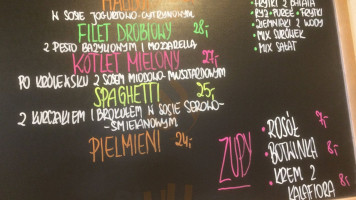 W SOSIE JOGURTOWO-CYTRYNOWYM
FILET DROBIOWY 28,-
Z PESTO BAZYLIOWYM I MOZZARELLĄ
KOTLET MIELONY 27,-
PO KRÓLEWSKU Z SOSEM MIODOWO-MUSZTARDOWYM
SPAGHETTI 25,-
Z KURCZAKIEM I BROKUŁEM W SOSIE SEROWO-
ŚMIETANOWYM
PIELMIENI 24,-
FRYTKI Z BATATA
• RYŻ • PUREE • FRYTKI
• ZIEMNIAKI Z WODY
• MIX SURÓWEK
• MIX SAŁAT
ZUPY
• ROSÓŁ 7,-
• BOTWINKA 8,-
• KREM Z
KALAFIORA 8,-